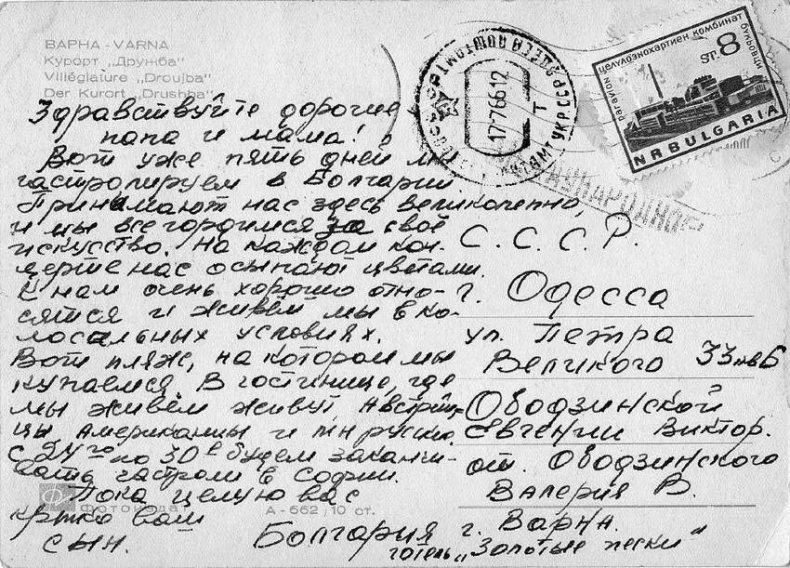 ВАРНА - VARNA
Курорт „Дружба"
Villégiature „Droujba"
Der Kurort „Drushba"
Здравствуйте дорогие
папа и мама!
Вот уже пять дней мы
гастролируем в Болгарии
Принимают нас здесь великолепно,
и мы все гордимся за своё
искусство. На каждом кон-
церте нас осыпают цветами.
К нам очень хорошо отно-
сятся и живём мы в ко-
лосальных условиях.
Вот пляж, на котором мы
купаемся. В гостинице, где
мы живём живут австрий-
цы американцы и
С 24го по 30е будем заканчи-
вать гастроли в Софии.
Пока целую вас
кртко ваш
сын.
ФОТОИЗДАТ
А - 662 , 10 ст.
17·7·66 12
ОДЕССА ПОЧТАМТ УКР.ССР
МЕЖДУНАРОДНОЕ
целулознохартиен комбинат
ст. 8
NR BULGARIA
С. С. С. Р.
г. Одесса
ул. Петра
Великого 33 кв 6
Ободзинской
Евгении Виктор.
от. Ободзинского
Валерия В.
Болгария г. Варна.
готель „Золотые пески"